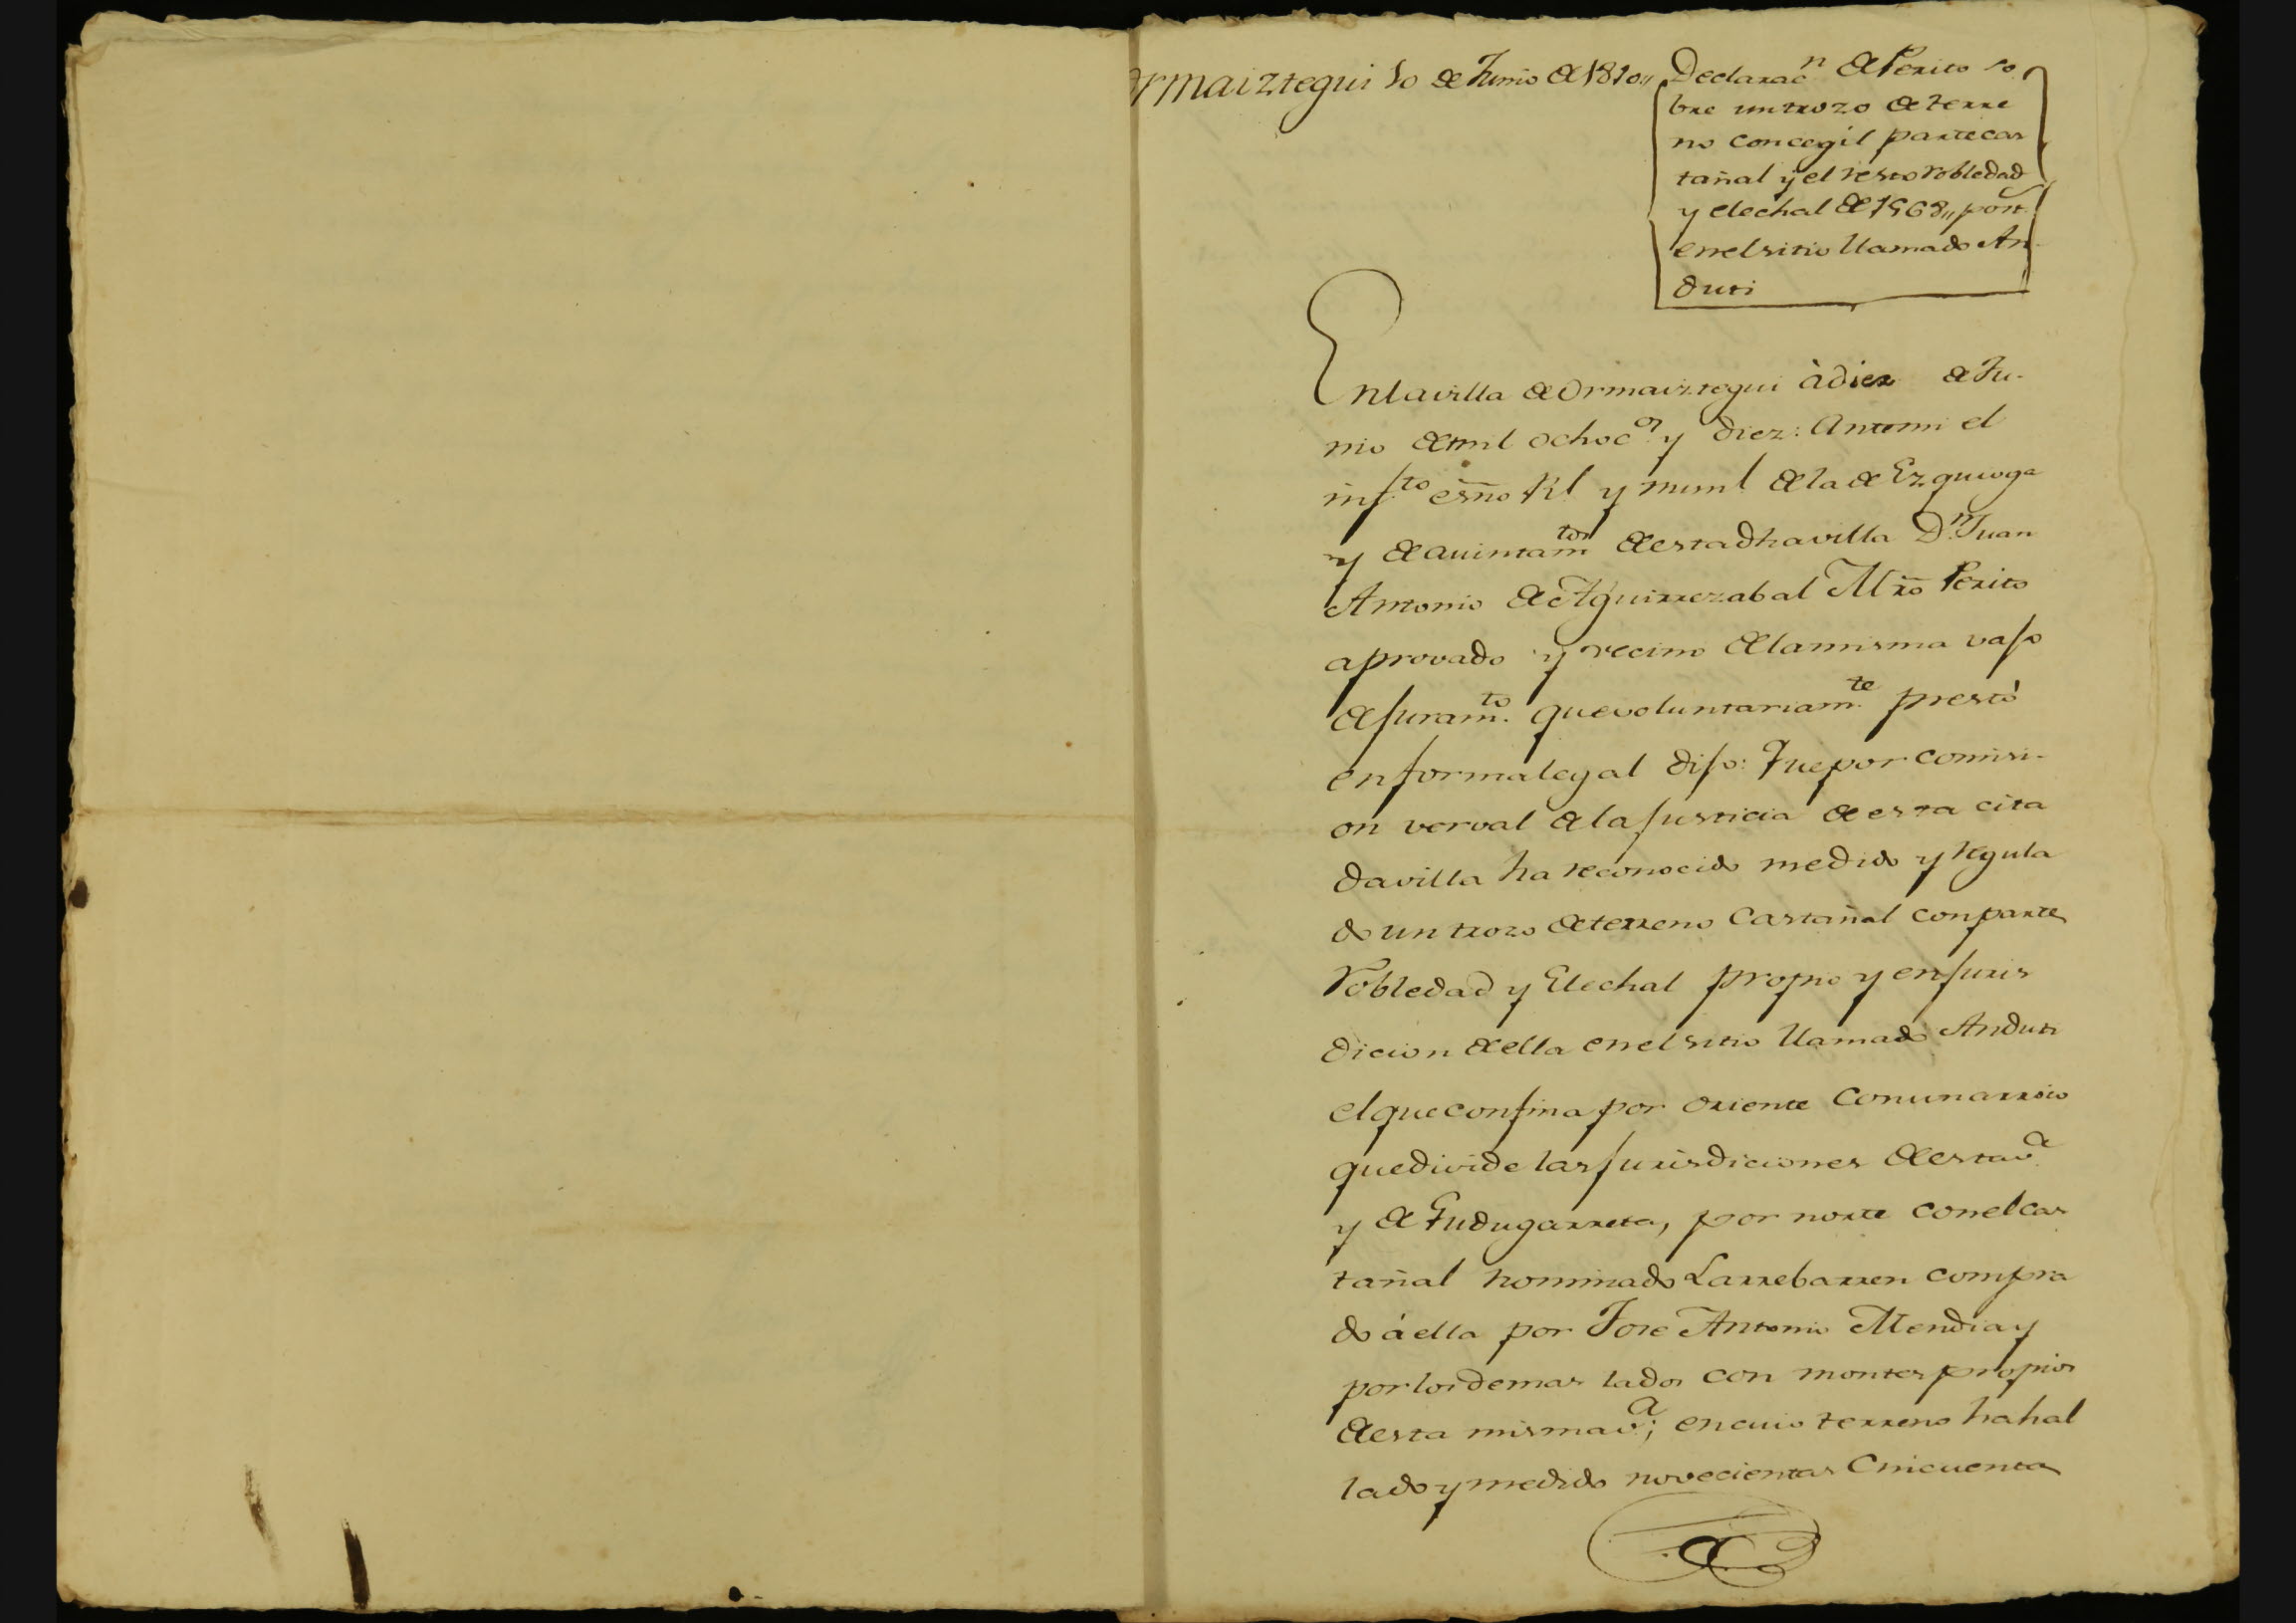 Ormaiztegui 10 de Junio de 1810,,
Declarac.n de Perito so
bre un trozo de terre
no concegil parte cas
tañal y el resto robledad
y elechal de 1568,, post.s
en el sitio llamado An
duti
En la villa de Ormaiztegui à diez de Ju-
nio de mil ochoc.s y diez: Antemi el
inf.to esño Rl y numl de la de Ezquioga
y de auintam.tos de esta dha villa D.n Juan
Antonio de Aguirrezabal Mro Perito
aprovado y vecino de la misma vajo
de juram.to que voluntariam.te prestó
en forma legal dijo: Que por comisi-
on verval de la justicia de esta cita
da villa ha reconocido medido y regula
do un trozo de terreno Castañal con parte
Robledad y Elechal propio y en juris
dicion de ella en el sitio llamado Anduti
el que confina por oriente con un arroio
que divide las jurisdiciones de esta v.a
y de Gudugarreta, por norte con el cas
tañal nominado Larrebarren compra
do á ella por Jose Antonio Mendia y
por los demas lados con montes propios
de esta misma v.a; en cuio terreno ha hal
lado y medido novecientas Cincuenta